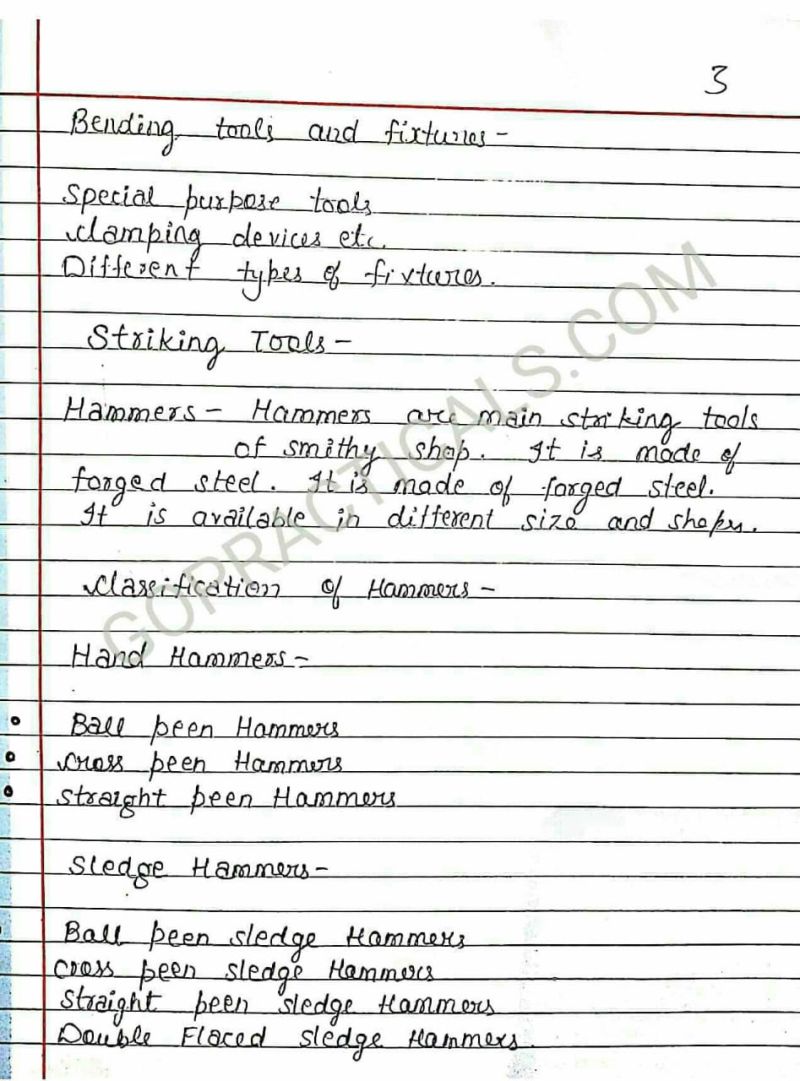 3
Bending tools and fixtures -
Special purpose tools
clamping devices etc.
Different types of fixtures.
Striking Tools -
Hammers - Hammers are main striking tools
of smithy shop. It is made of
forged steel. It is made of forged steel.
It is available in different size and shapes.
Classification of Hammers -
Hand Hammers -
Ball peen Hammers
cross peen Hammers
straight peen Hammers
Sledge Hammers -
Ball peen sledge Hammers
cross peen sledge Hammers
straight peen sledge Hammers
Double Flaced sledge Hammers.
GOPRACTICALS.COM